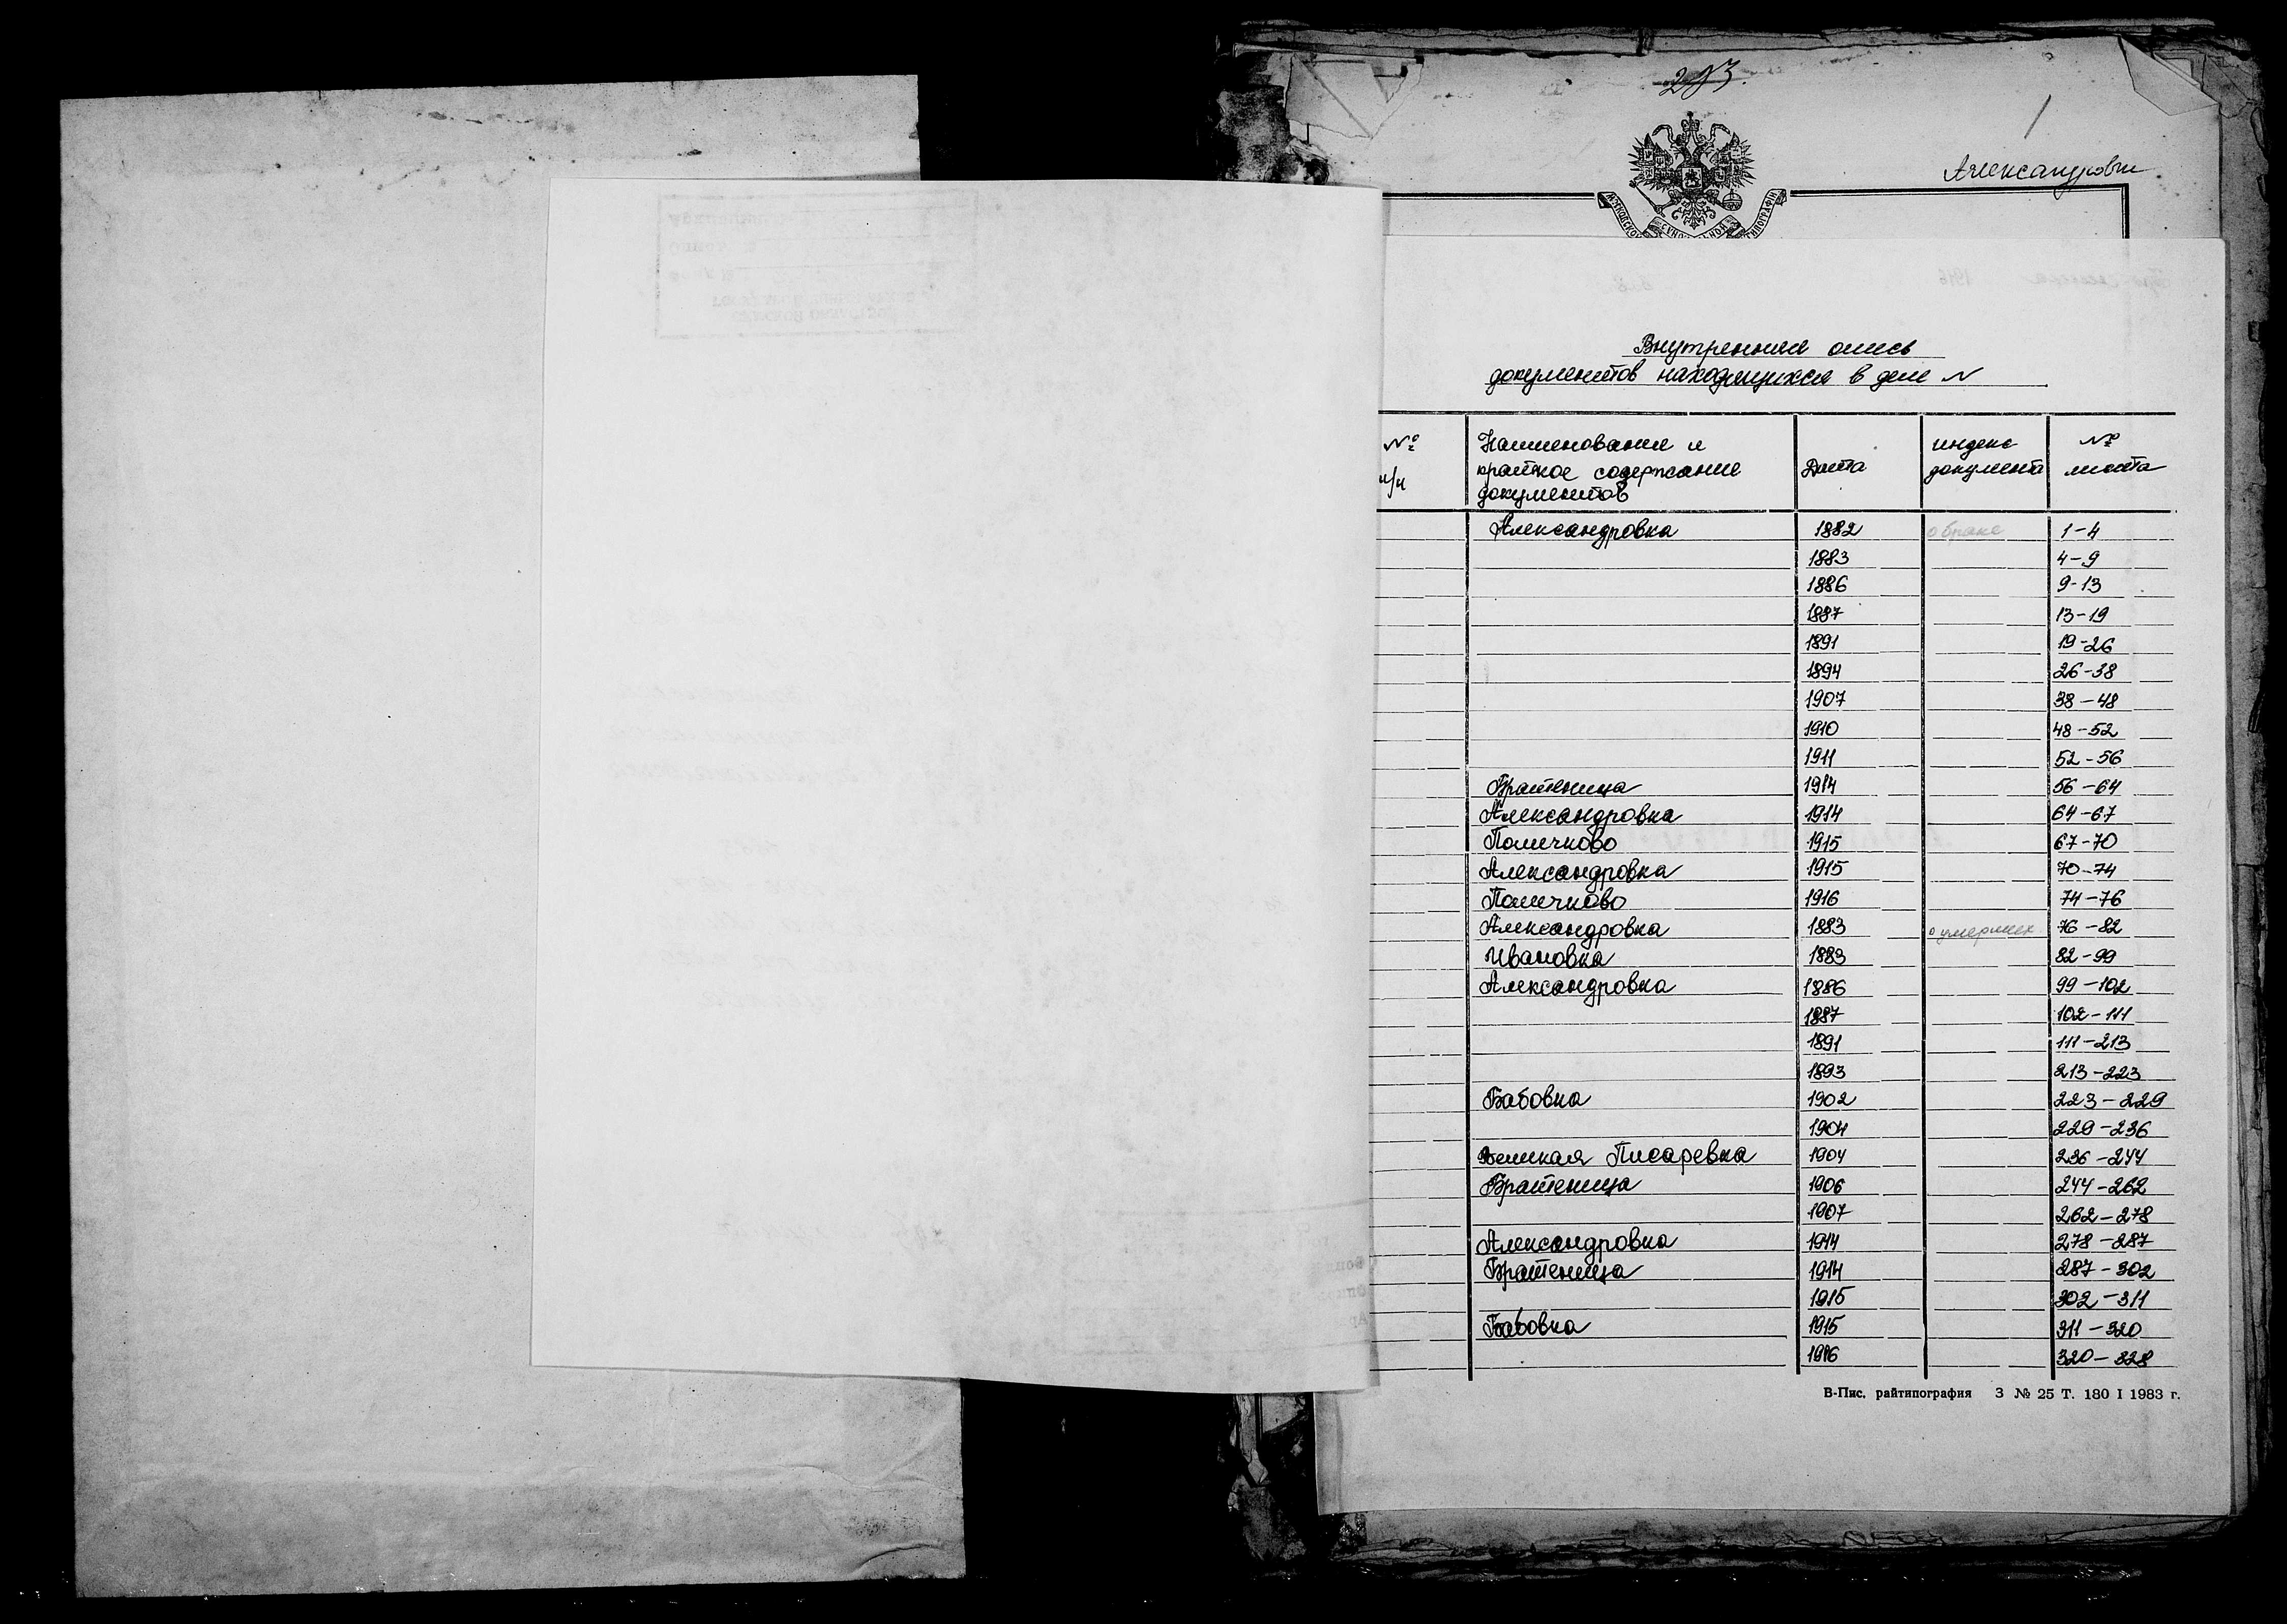 293.
1
Александровк
СѵНОДАЛЬНОЙ
ТИПОГРАФІИ
Внутренняя опись
документов находящихся в деле №
№ п/п Наименование и краткое содержание документов Дата индекс документа № листа
Александровка 1882 о браке 1-4
1883 4-9
1886 9-13
1887 13-19
1891 19-26
1894 26-38
1907 38-48
1910 48-52
1911 52-56
Братеница 1914 56-64
Александровка 1914 64-67
Поличково 1915 67-70
Александровка 1915 70-74
Поличково 1916 74-76
Александровка 1883 о умерших 76-82
Ивановка 1883 82-99
Александровка 1886 99-102
1887 102-111
1891 111-213
1893 213-223
Бабовка 1902 223-229
1904 229-236
Великая Писаревка 1904 236-244
Братеница 1906 244-262
1907 262-278
Александровка 1914 278-287
Братеница 1914 287-302
1915 302-311
Бабовка 1915 311-320
1916 320-328
В-Пис. райтипография З № 25 Т. 180 I 1983 г.